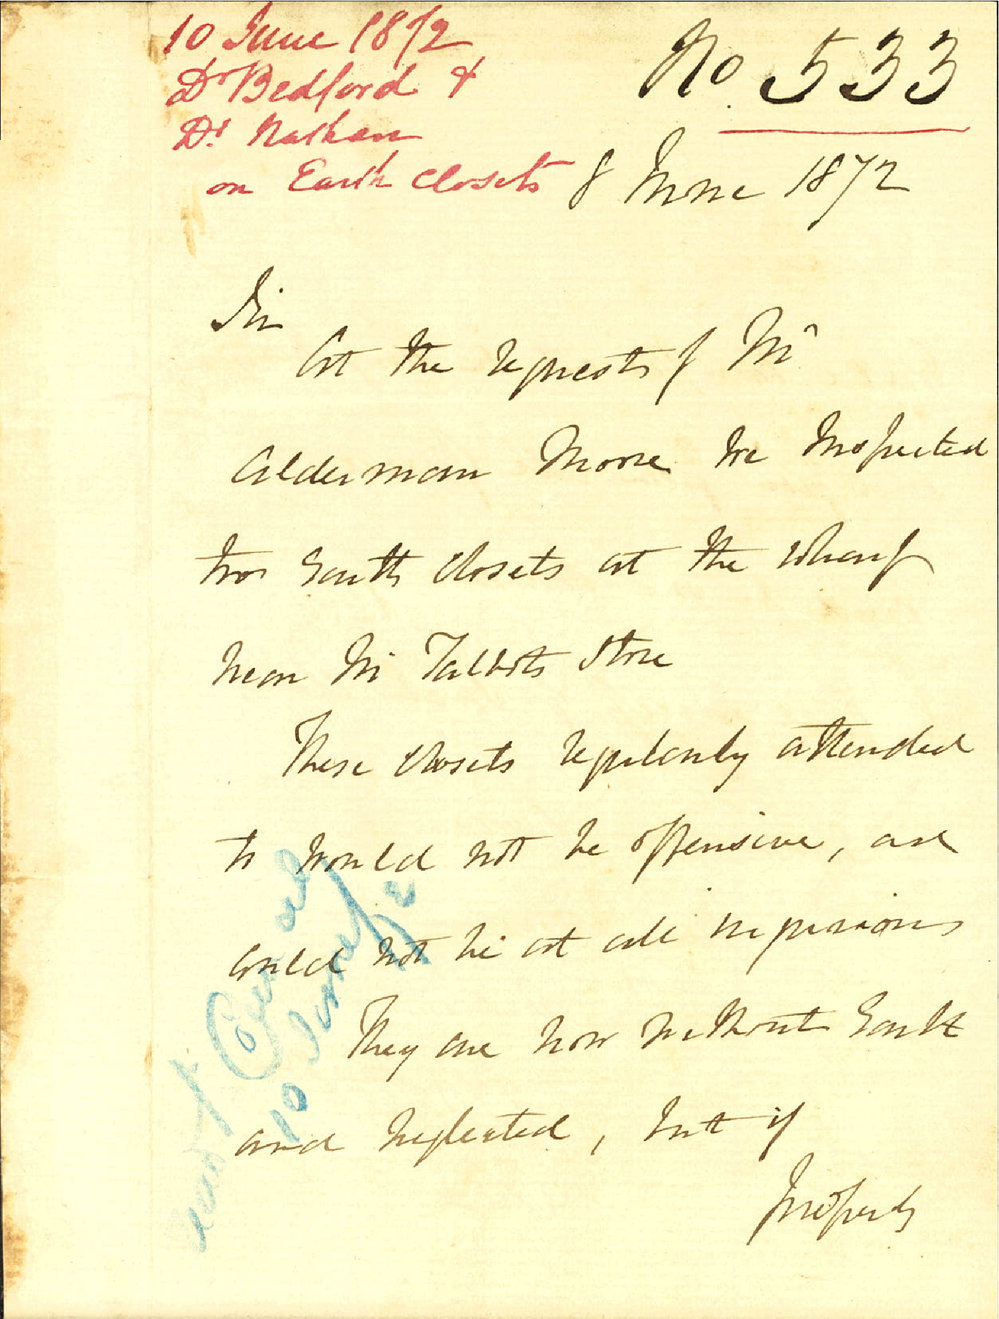 10 June 1872
Dr Bedford &
Dr Nathan
on Earth Closets
No 533
8 June 1872
Sir
At the request of Mr
Alderman Moore we inspected
two Earth Closets at the Wharf
near Mr Talbots Store
These closets regularly attended
to would not be offensive, and
could not be at all injurious
They are now without Earth
and neglected, but if
properly
read Council
10 June 72